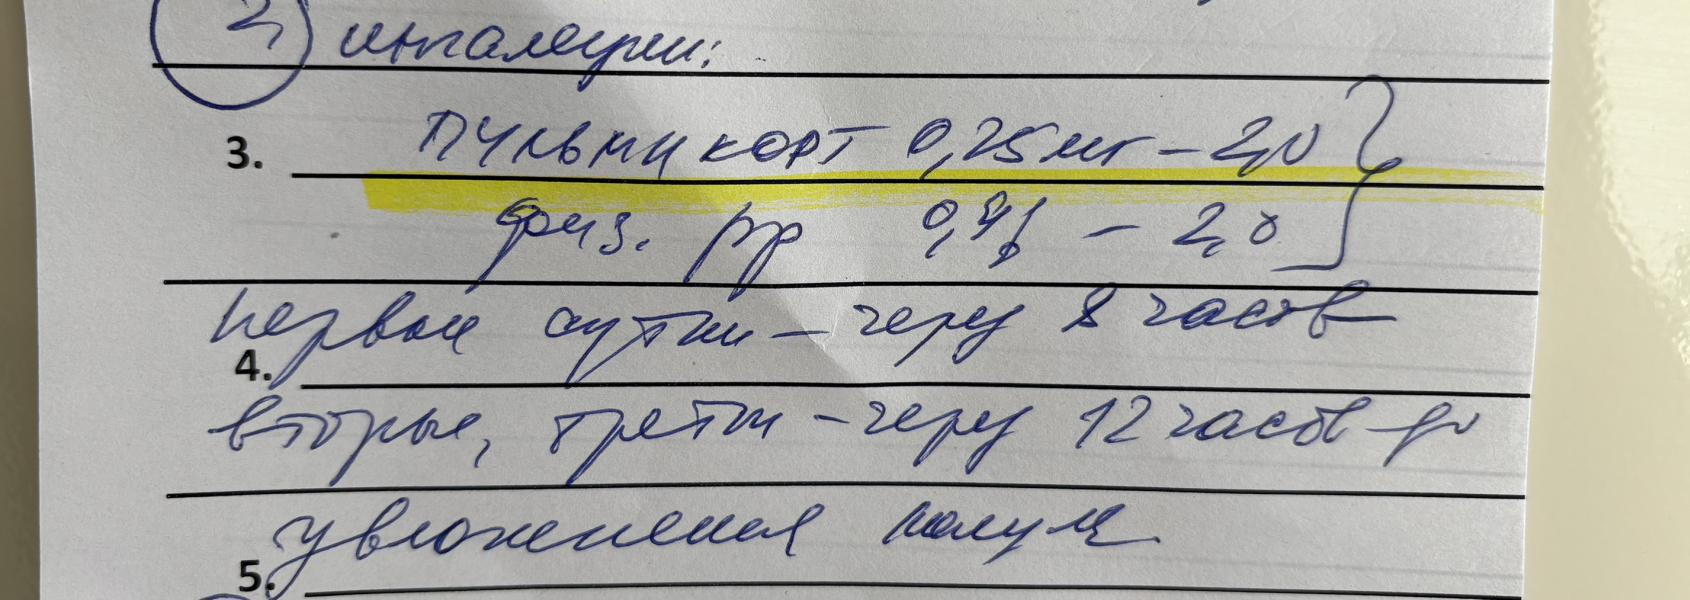 2, ингаляции:
3. Пульмикорт 0,25мг – 2,0
физ. рр 0,9% – 2,0
первые сутки – через 8 часов
4.
вторые, третьи – через 12 часов – до
увлажнения кашля
5.